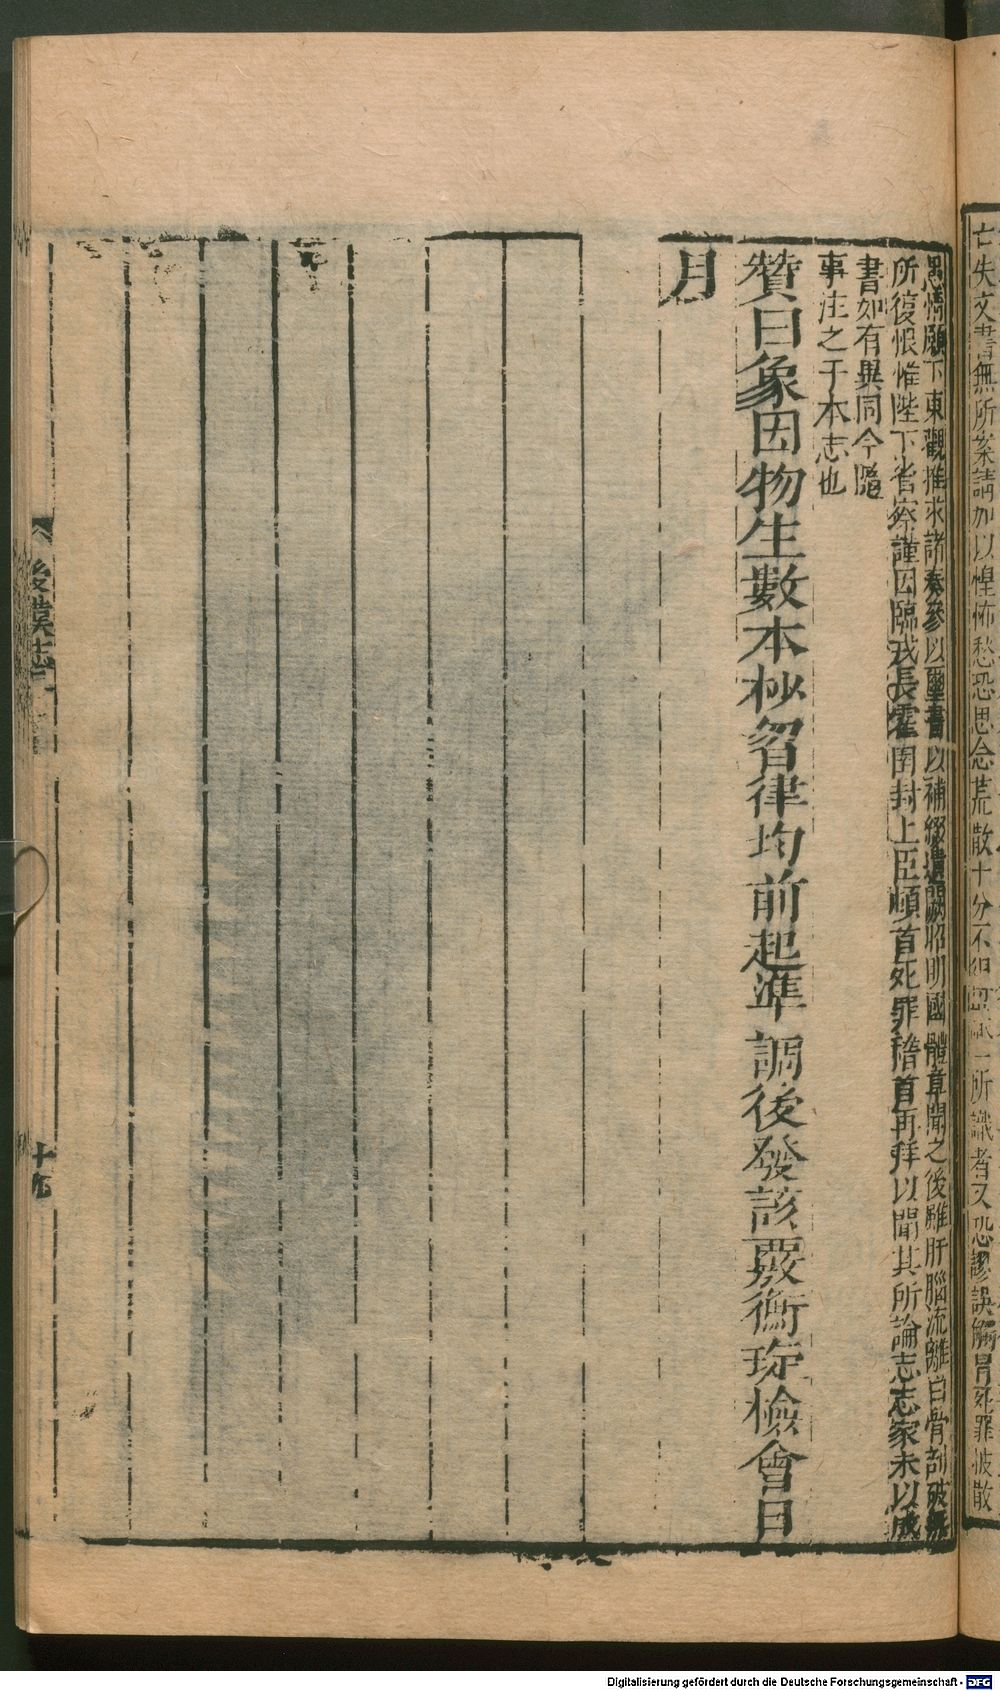 亡失文書無所案請加以惶怖愁恐思念荒散十分不得識一所識者又恐謬誤觸冒死罪披散
愚情願下東觀推求諸奏參以璽書以補綴遺闕昭明國體章聞之後雖肝腦流離白骨剖破無
所復恨惟陛下省察謹因臨戎長霍圉封上臣頓首死罪稽首再拜以聞其所論志志家未以成
書如有異同今隨
事注之于本志也
贊曰象因物生數本杪曶律均前起準調後發該覈衡琁檢會日
月
後漢志
十九
Digitalisierung gefördert durch die Deutsche Forschungsgemeinschaft - DFG